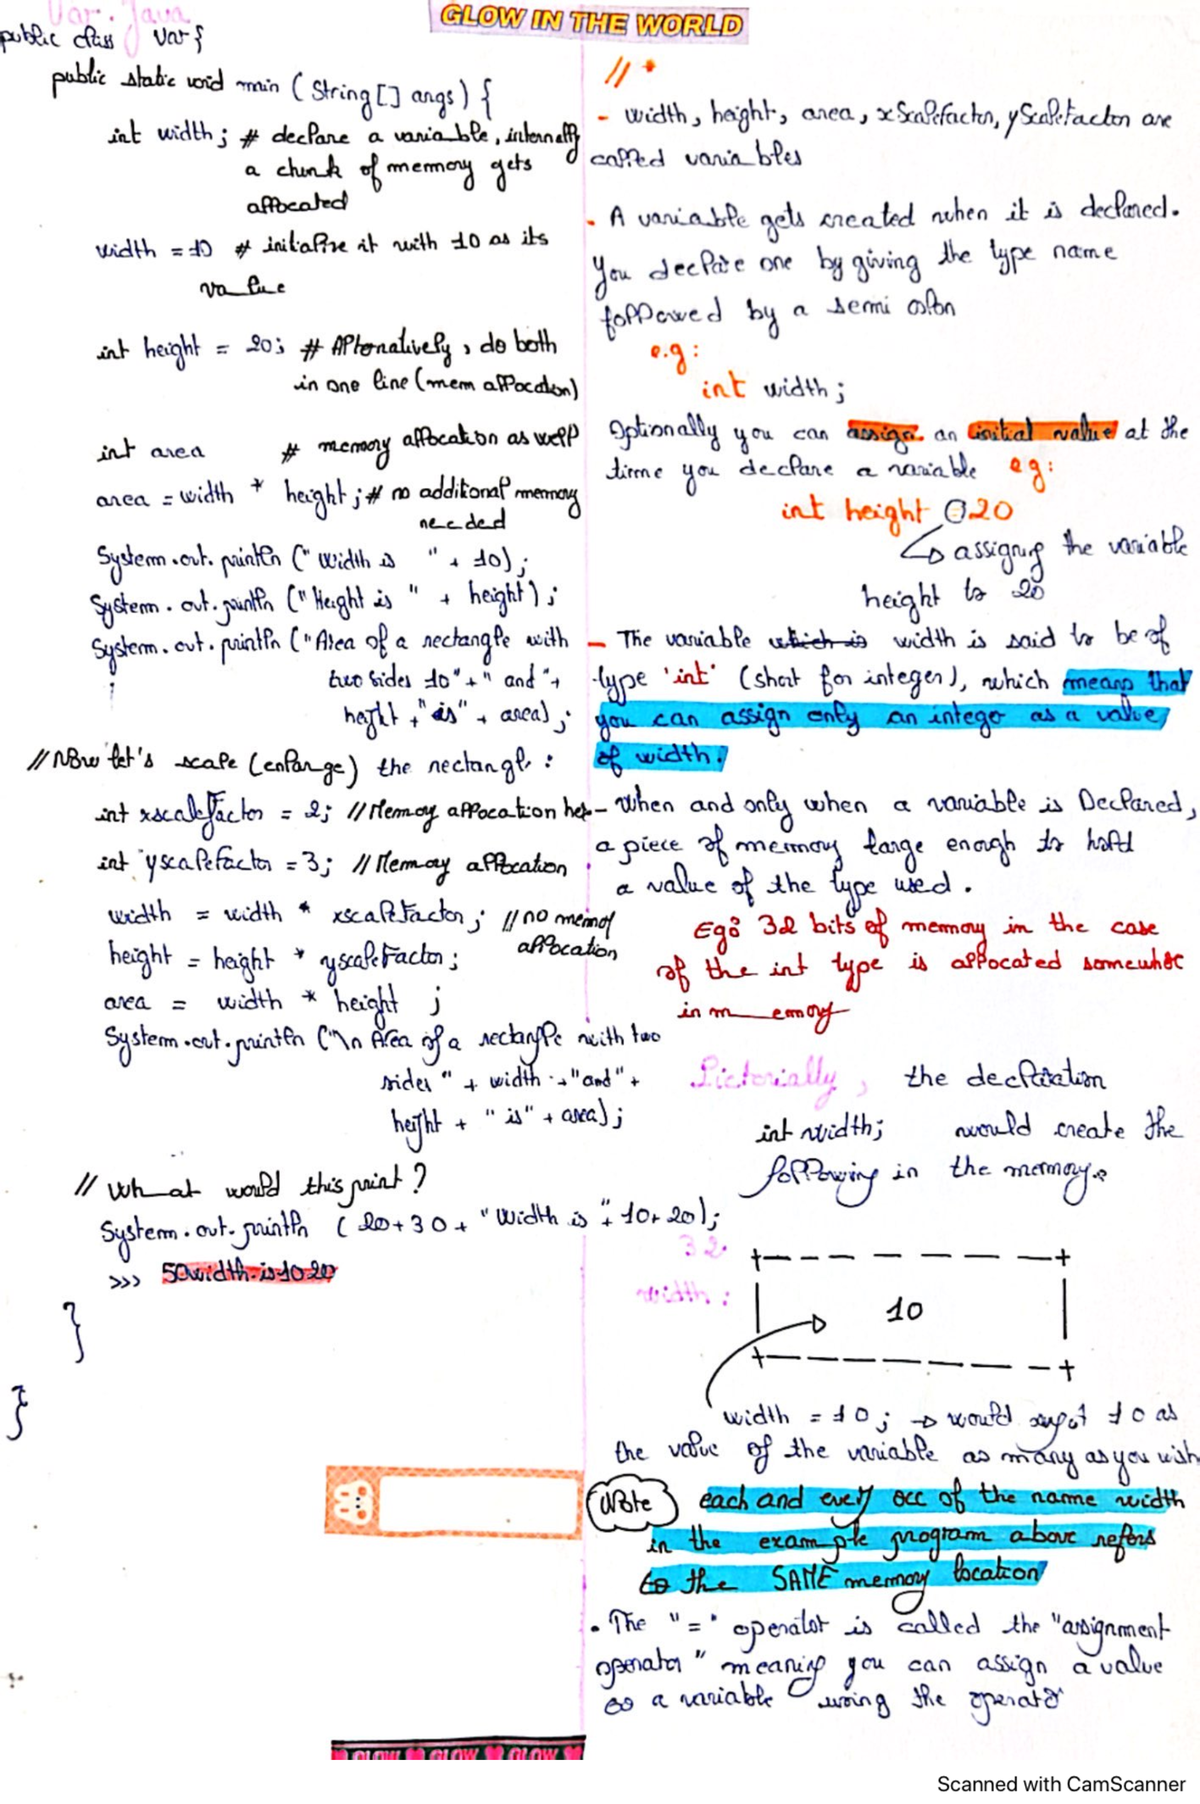 GLOW IN THE WORLD
Var. Java
public class Var {
public static void main (String[] args) {
int width; # declare a variable, internally
a chunk of memory gets
allocated
width = 10 # initialise it with 10 as its
value
int height = 20; # Alternatively, do both
in one line (mem allocation)
int area # memory allocation as well
area = width * height; # no additional memory
needed
System.out.println (" Width is " + 10);
System.out.println ("Height is " + height);
System.out.println ("Area of a rectangle with
two sides 10"+" and "+
height +"is" + area);
// Now let's scale (enlarge) the rectangle:
int xscaleFactor = 2; // Memory allocation her
int yscaleFactor = 3; // Memory allocation
width = width * xscaleFactor; // no memory
allocation
height = height * yscaleFactor;
area = width * height ;
System.out.println ("\n Area of a rectangle with two
sides " + width + "and" +
height + " is" + area);
// What would this print?
System.out.println ( 20+30 + "Width is " + 10+20);
>>> 50width is 1020
}
}
// *
- width, height, area, xScaleFactor, yScaleFactor are
called variables
- A variable gets created when it is declared.
You declare one by giving the type name
followed by a semi colon
e.g:
int width;
Optionally you can assign an initial value at the
time you declare a variable eg:
int height = 20
↳ assigning the variable
height to 20
- The variable which is width is said to be of
type 'int' (short for integer), which means that
you can assign only an integer as a value
of width.
- When and only when a variable is Declared,
a piece of memory large enough to hold
a value of the type used.
Eg: 32 bits of memory in the case
of the int type is allocated somewhere
in memory
Pictorially, the declaration
int width; would create the
following in the memory.
32
width: 10
width = 10; → would 10 as
the value of the variable as many as you wish
Note each and every occ of the name width
in the example program above refers
to the SAME memory location
. The "=" operator is called the "assignment
operator" meaning you can assign a value
to a variable using the operator
GLOW GLOW GLOW
Scanned with CamScanner